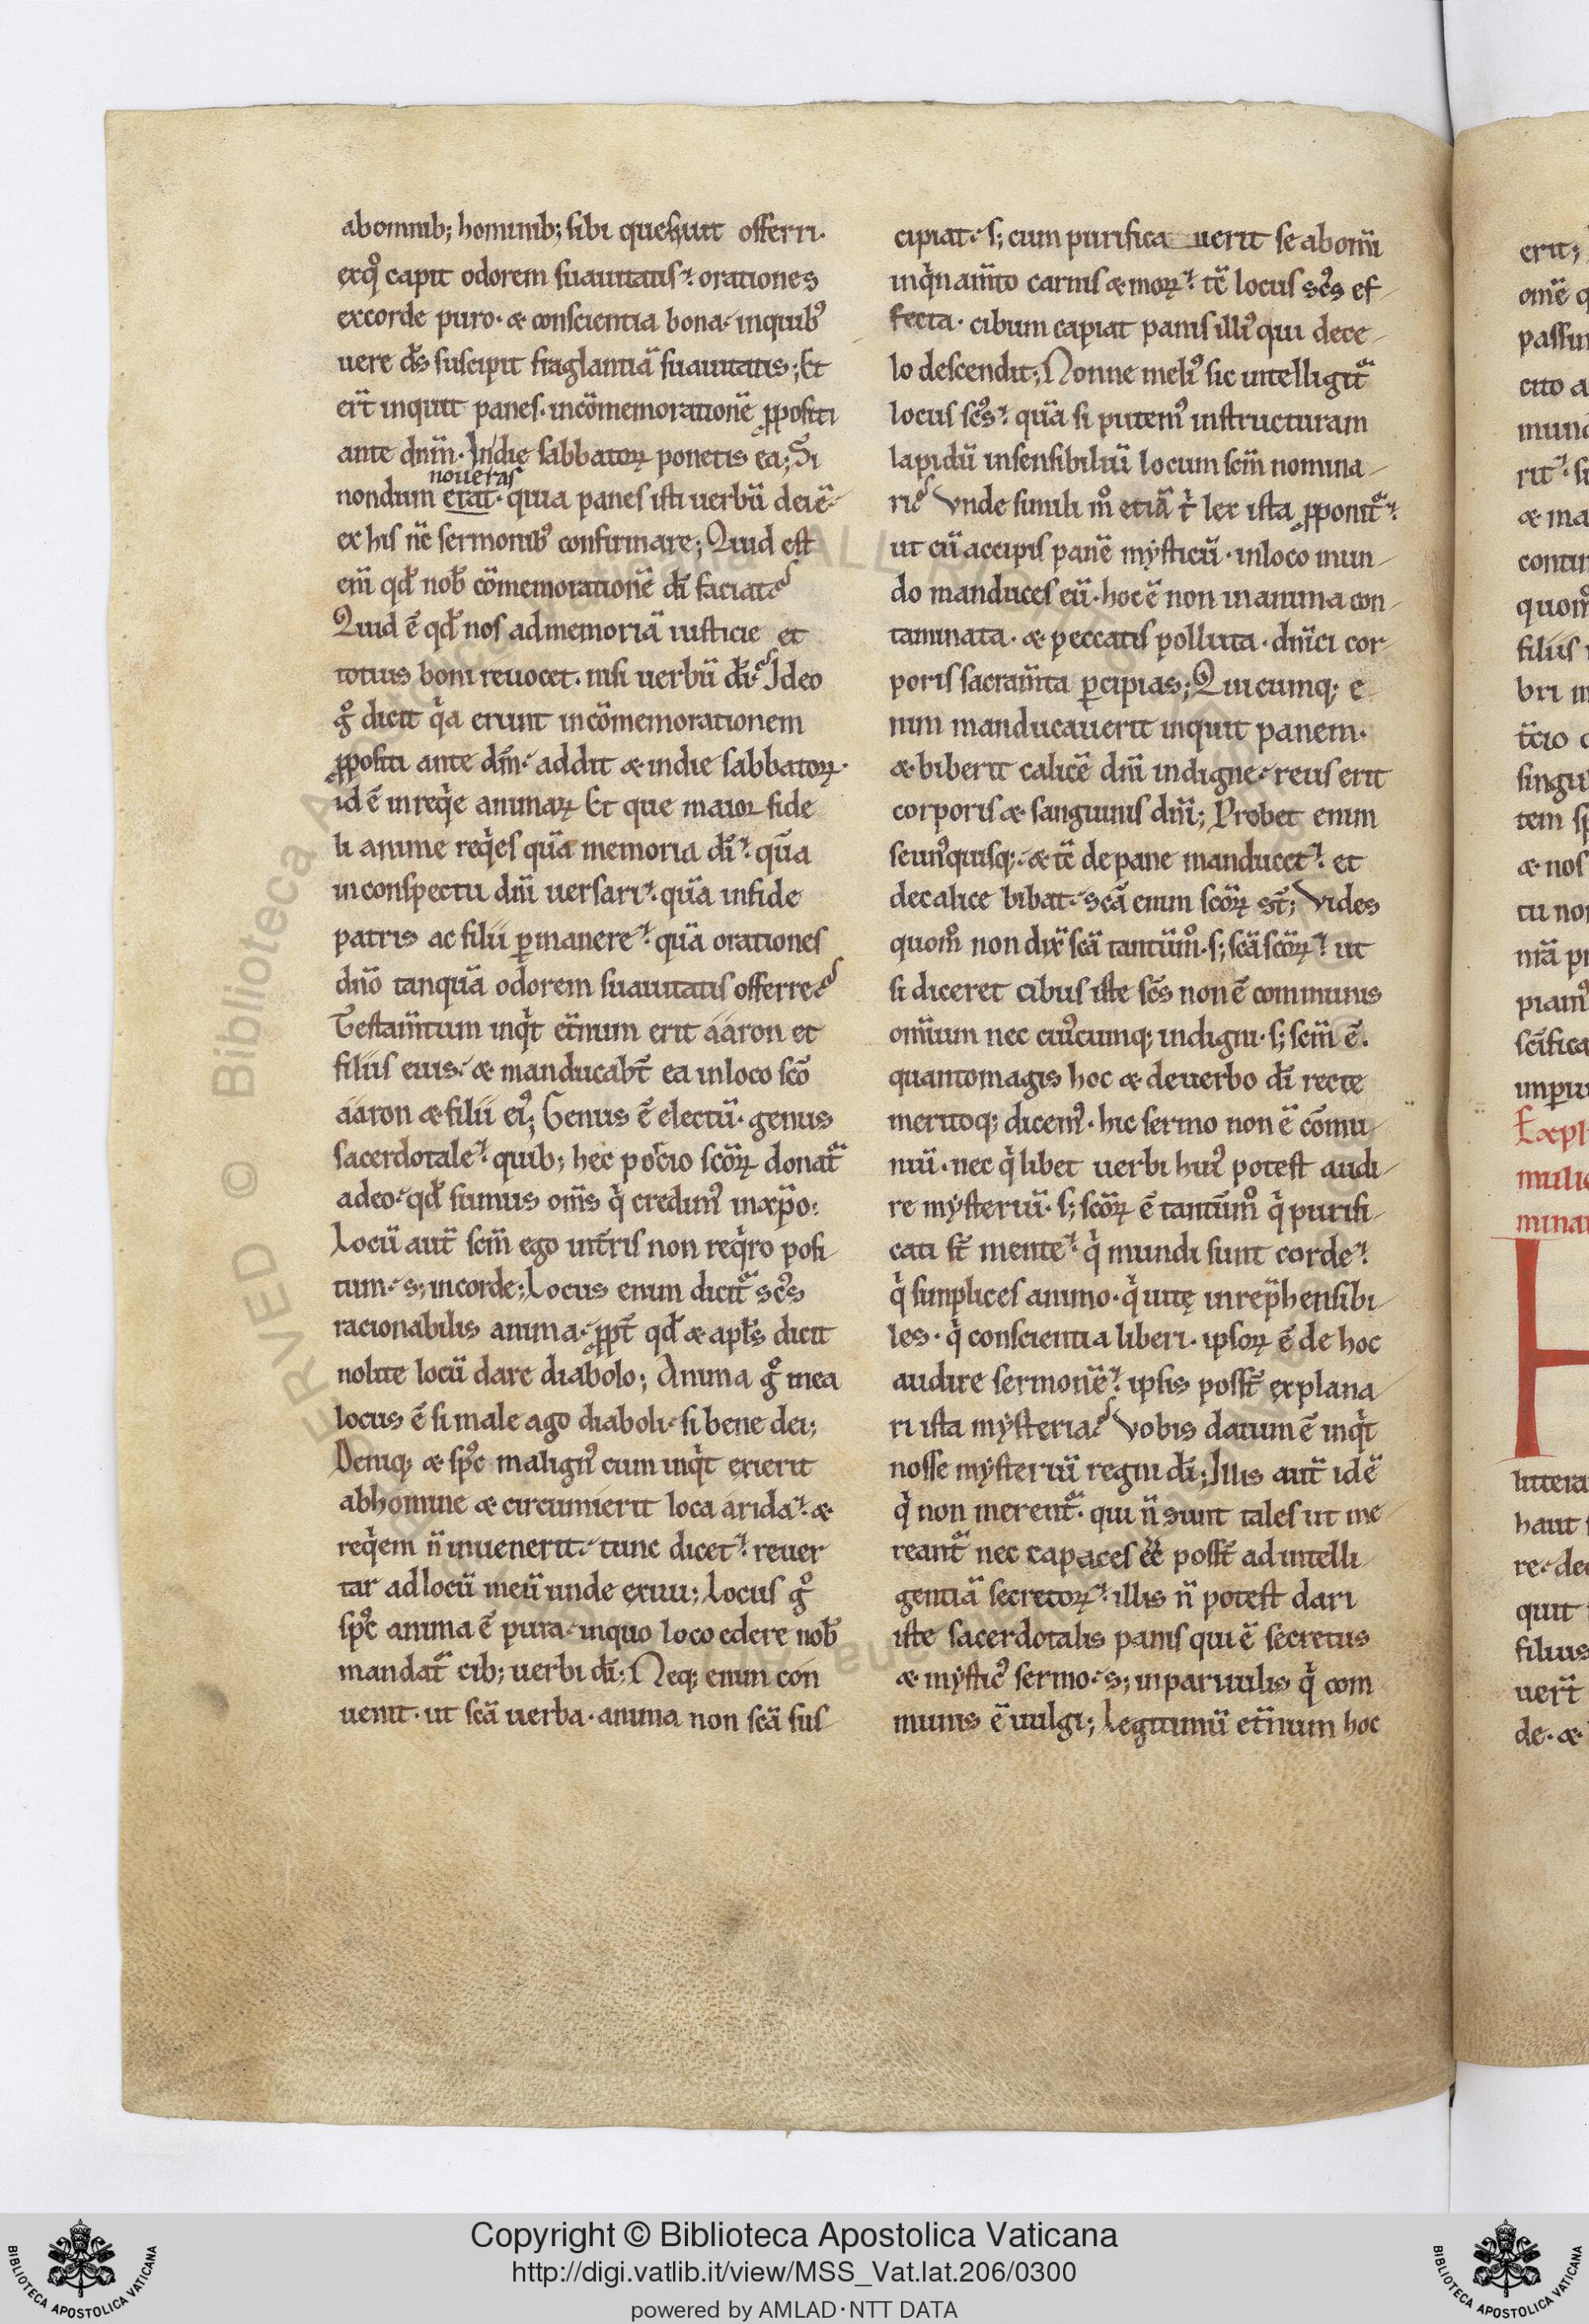 abomnib; hominib; sibi quesiuit offerri·
exq̊ capit odorem suauitatis· orationes
excorde puro· & conscientia bona· inquibꝰ
uere ds̄ suscipit fraglantiā suauitatis; Et
erit̄ inquit panes· incōmemorationē ꝓpositi
ante dnm̄· Indie sabbatoꝝ ponetis ea; Si
noueras
nondum erat· quia panes isti uerbū dei ē·
ex his nc̄ sermonibꝰ confirmare; Quid est
eni̅ qd̄ nob̄ cōmemorationē di̅ faciat?
Quid ē qd̄ nos admemoriā iusticie et
totius boni reuocet· nisi uerbū di̅? Ideo
g̊ dicit qͥa erunt incōmemorationem
ꝓpositi ante dm̄n· addit & indie sabbatoꝝ·
id ē inreqͥe animaꝝ Et que maior fide
li anime reqͥes quā memoria di̅· quā
inconspectu dni̅ uersari· quā infide
patris ac filii ꝑmanere· quā orationes
dnō tanquā odorem suauitatis offerre?
Testam̄tum inqͥt et̄num erit ááron et
filiis euis· & manducabt̄ ea inloco scō
ááron & filii eiꝰ; Genus ē electū· genus
sacerdotale· quib; hec porcio scōꝝ donat᷑
adeo· qd̄ sumus oms̄ qͥ credimꝰ inxp̄o:
Locū aut̄ scm̄ ego int̄ris non reqͥro posi
tum· s; incorde; Locus enim dicit᷑ scs̄
racionabilis anima· ꝓpt̄ qd̄ & apls̄ dicit
nolite locū dare diabolo; Anima g̊ mea
locus ē si male ago diaboli· si bene dei;
Deniq; & spc̄ malignꝰ cum inqͥt exierit
abhomine & circumierit loca arida· &
reqͥem n̄ inuenerit· tunc dicet· reuer
tar adlocū meū unde exiui; Locus g̊
spc̄ anima ē pura· inquo loco edere nob̄
mandat᷑ cib; uerbi di̅; Neq; enim con
uenit· ut scā uerba· anima non scā sus
cipiat· s; cum purifica uerit se abomi̅
inqͥnam̄to carnis & moꝝ· tc̄ locus scs̄ ef
fecta· cibum capiat panis illiꝰ qui dece
lo descendit; Nonne meliꝰ sic intelligit᷑
locus scs̄· quā si putemꝰ instructuram
lapidū insensibiliū locum scm̄ nomina
ri? Vnde simili m̊ etiā tͥ lex ista ꝓponit᷑·
ut cū accipis panē mysticū· inloco mun
do manduces eū· hoc ē non inanima con
taminata· & peccatis polluta· dni̅ci cor
poris sacram̄ta ꝑcipias; Quicumq; e
nim manducauerit inquit panem·
& biberit calicē dni̅ indigne· reus erit
corporis & sanguinis dni̅; Probet enim
se unꝰquisq; & tc̄ depane manducet· et
decalice bibat· scā enim scōꝝ st̄; Vides
quom̊ non dix̄ scā tantūm̊· s; scā scōꝝ· ut
si diceret cibus iste scs̄ non ē communis
omīum nec cuiꝰcumq; indigni· s; scm̄ ē·
quantomagis hoc & deuerbo di̅ recte
meritoq; dicemꝰ· hic sermo non ē cōmu
niū· nec qͥlibet uerbi huiꝰ potest audi
re mysteriū· s; scōꝝ ē tantūm̊ qͥ purifi
cati st̄ mente· qͥ mundi sunt corde·
qͥ simplices animo· qͥ uitę inrep̄hensibi
les· qͥ conscientia liberi· ipsoꝝ ē de hoc
audire sermonē· ipsis posst̄ explana
ri ista mysteria? Vobis datum ē inqͥt
nosse mysteriū regni di̅; Illis aut̄ id ē
qͥ non merent᷑· qui n̄ sunt tales ut me
reant᷑ nec capaces ee̅ posst̄ adintelli
gentiā secretoꝝ· illis n̄ potest dari
iste sacerdotalis panis qui ē secretus
& mysticꝰ sermo· s; inparuulis qͥ com
munis ē uulgi; Legitimū et̄num hoc
erit;
omē q
passim
cito a
mund
rit· si
& ma
contin
quom̊
filiis
bri in
tc̄io
singu
tem sp
& nos
tu non
piamꝰ
scīfica
Expl
mulie
minat
H
littera
haut
re· dec
quit
filius
uerit̄
de· &
Copyright © Biblioteca Apostolica Vaticana
http://digi.vatlib.it/view/MSS_Vat.lat.206/0300
powered by AMLAD·NTT DATA
BIBLIOTECA APOSTOLICA VATICANA
BIBLIOTECA APOSTOLICA VATICANA